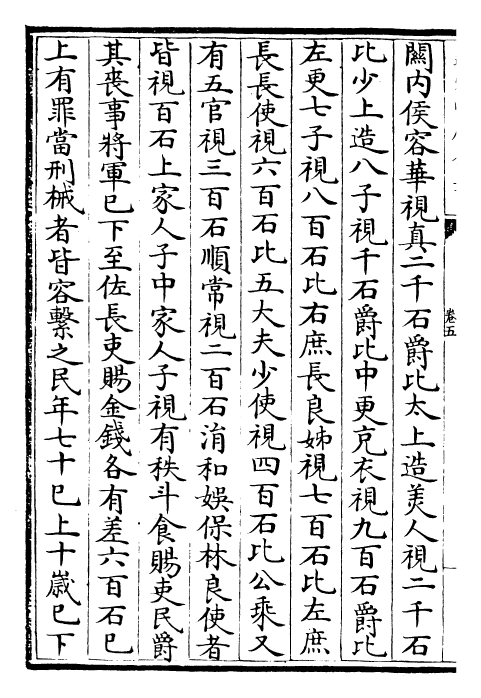 關内侯容華視真二千石爵比太上造美人視二千石
比少上造八子視千石爵比中更充衣視九百石爵比
左更七子視八百石比右庶長良姊視七百石比左庶
長長使視六百石比五大夫少使視四百石比公乘又
有五官視三百石順常視二百石涓和娛保林良使者
皆視百石上家人子中家人子視有秩斗食賜吏民爵
其喪事將軍已下至佐長吏賜金錢各有差六百石已
上有罪當刑械者皆容繫之民年七十已上十嵗已下
卷五